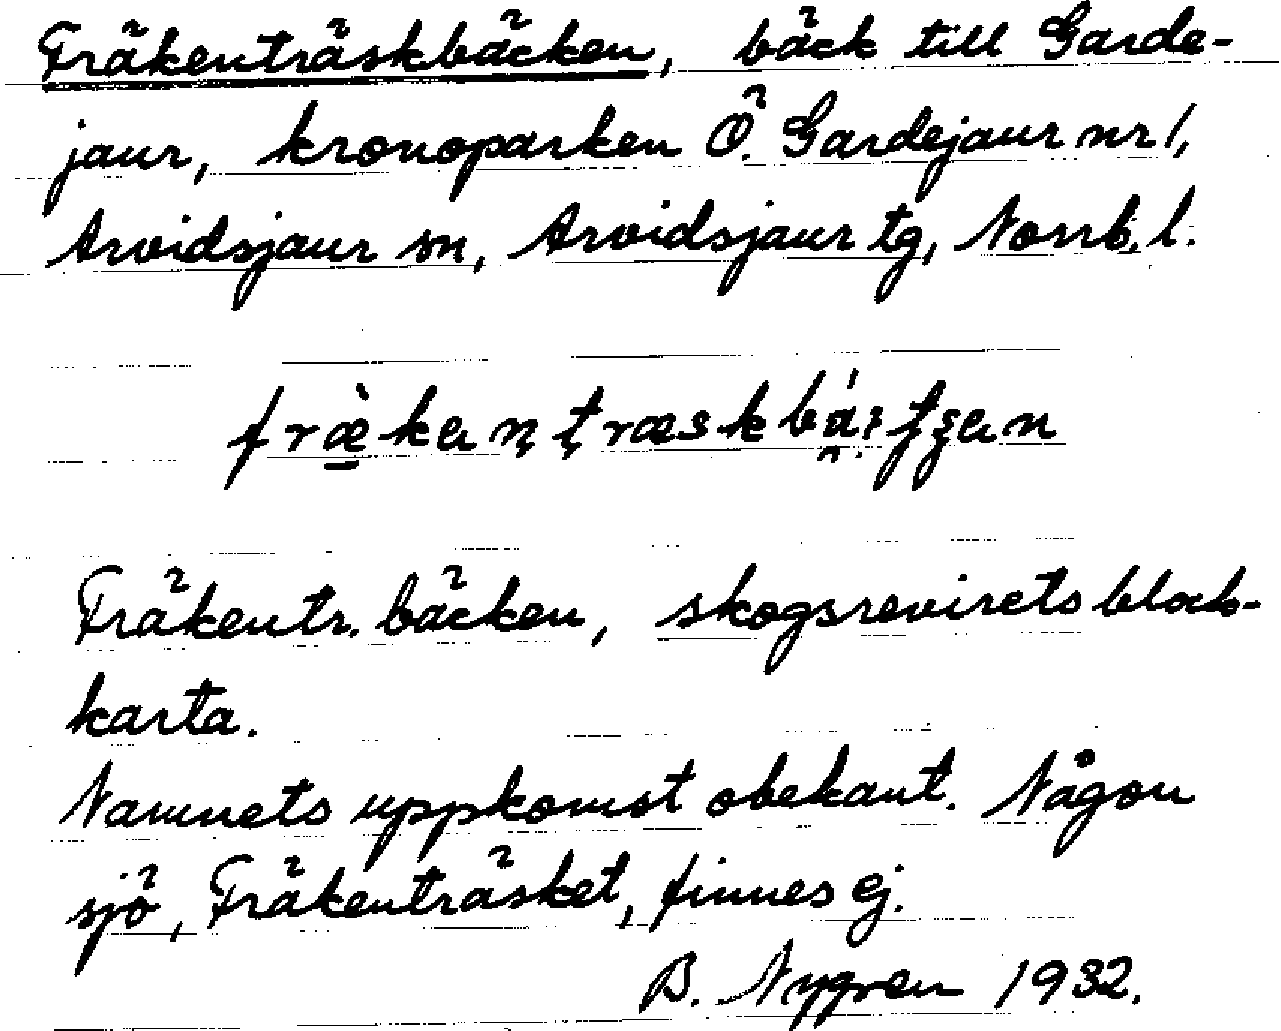 Fräkenträskbäcken, bäck till Garde-
jaur, kronoparken Ö. Gardejaur nr 1,
Arvidsjaur sn, Arvidsjaur tg, Norrb. l.
Fräkentr. bäcken, skogsrevirets block-
karta.
Namnets uppkomst obekant. Någon
sjö, Fräkenträsket, finnes ej.
B. Nygren 1932.